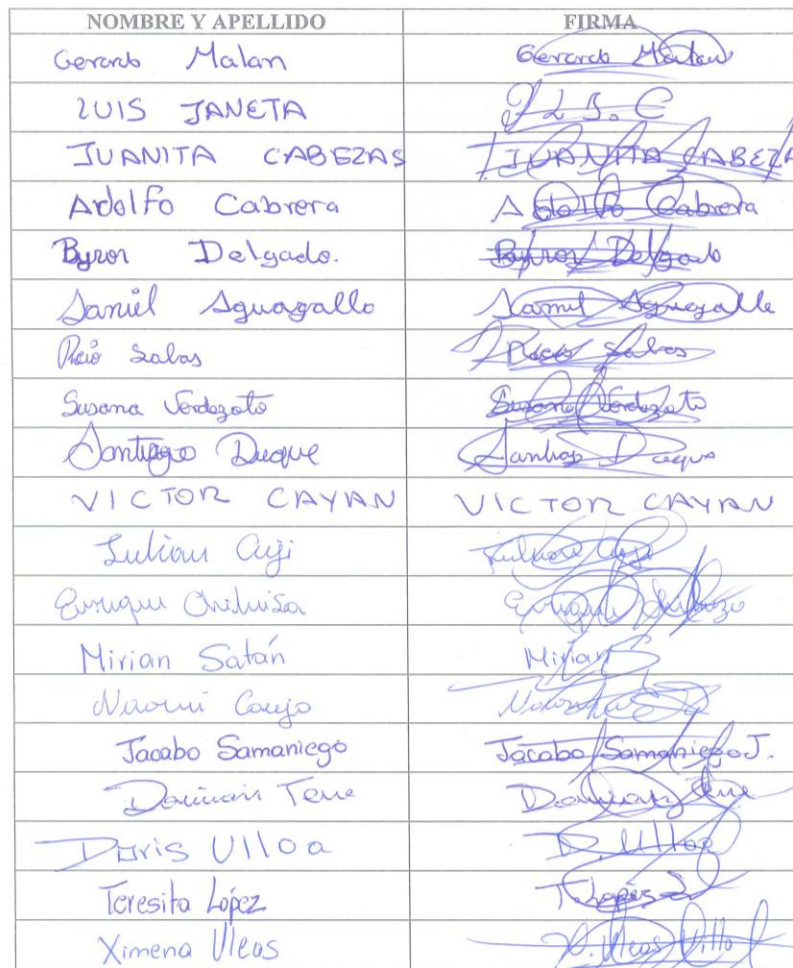 NOMBRE Y APELLIDO FIRMA
Gerardo Malan Gerardo Malan
LUIS JANETA
JUANITA CABEZAS JUANITA CABEZA
Adolfo Cabrera Adolfo Cabrera
Byron Delgado. Byron Delgado
Daniel Aguagallo Daniel Aguagallo
Rocío Salas Rocío Salas
Susana Verdezoto Susana Verdezoto
Santiago Duque Santiago Duque
VICTOR CAYAN VICTOR CAYAN
Enrique
Mirian Satán Mirian
Jacobo Samaniego Jacobo Samaniego J.
Damian Tene
Doris Ulloa D. Ulloa
Teresita López T. López
Ximena Vleas